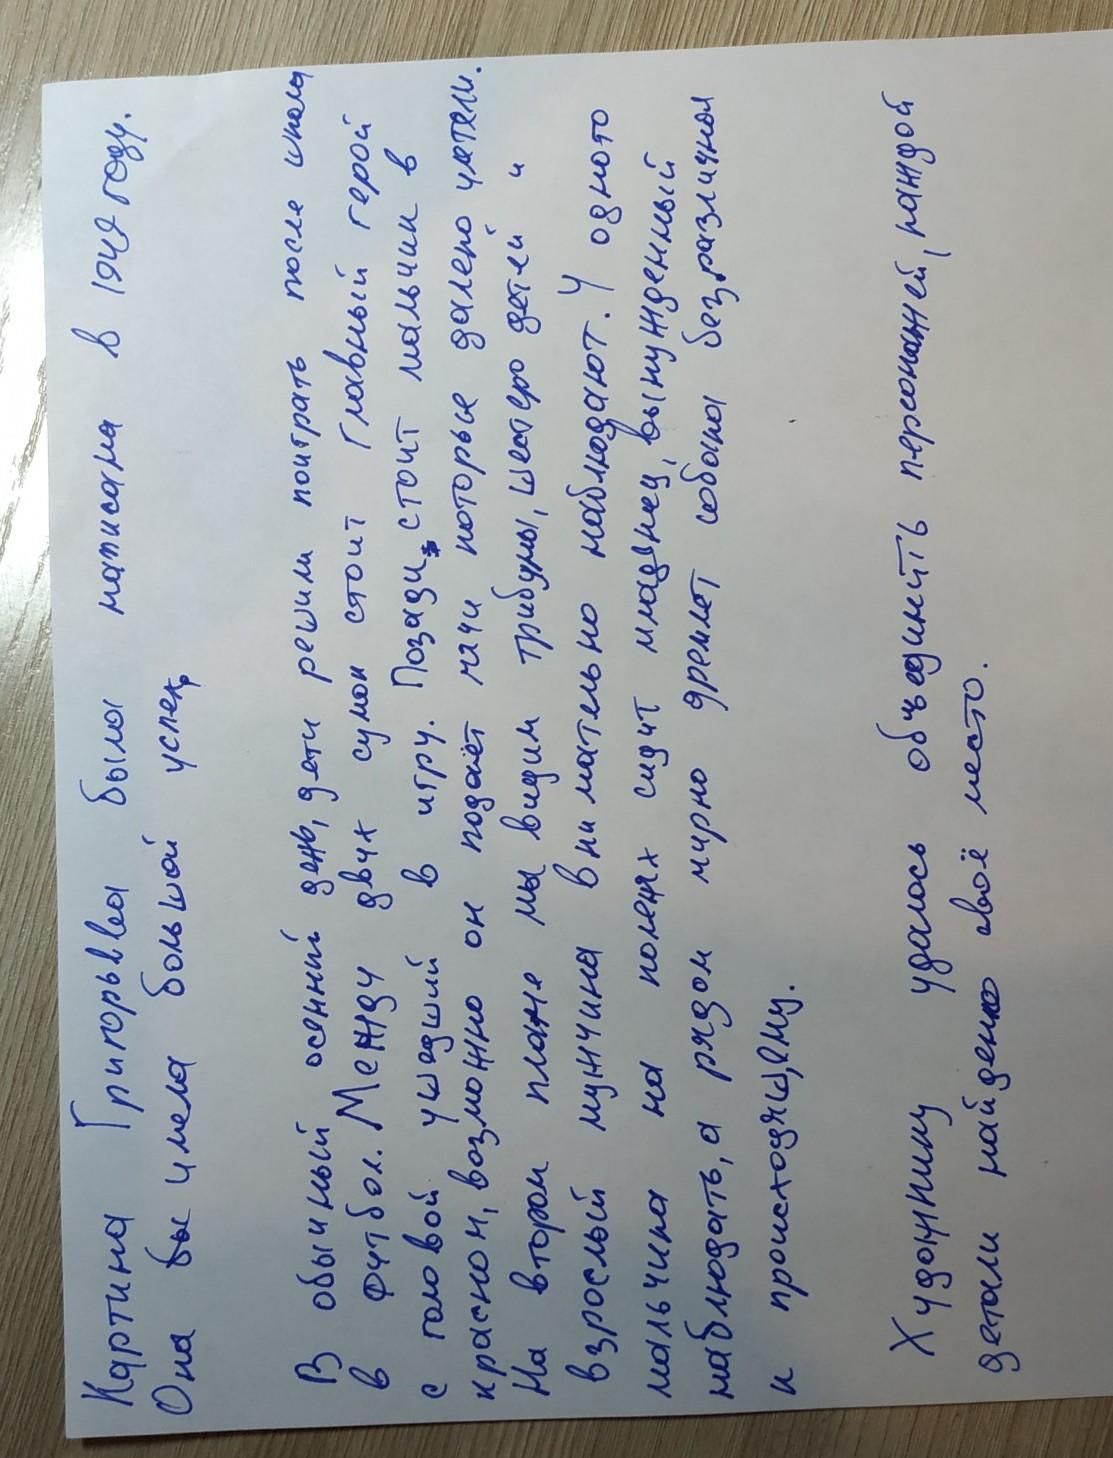 Картина Григорьвеа была написана в 1949 году.
Она бы имела большой успех
В обычный осенний день, дети решили поиграть после школы
в футбол. Между двух сумок стоит главный герой
с головой ушедший в игру. Позади, стоит мальчик в
красном, возможно он подаёт мячи которые далеко улетели.
На втором плане мы видим трибуны, шестеро детей и
взрослый мужчина внимательно наблюдают. У одного
мальчика на коленях сидит младенец, вынужденный
наблюдать, а рядом мирно дремлет собака безразличная
к происходящему.
Художнику удалось объединить персонажей, каждой
детали найдено своё место.